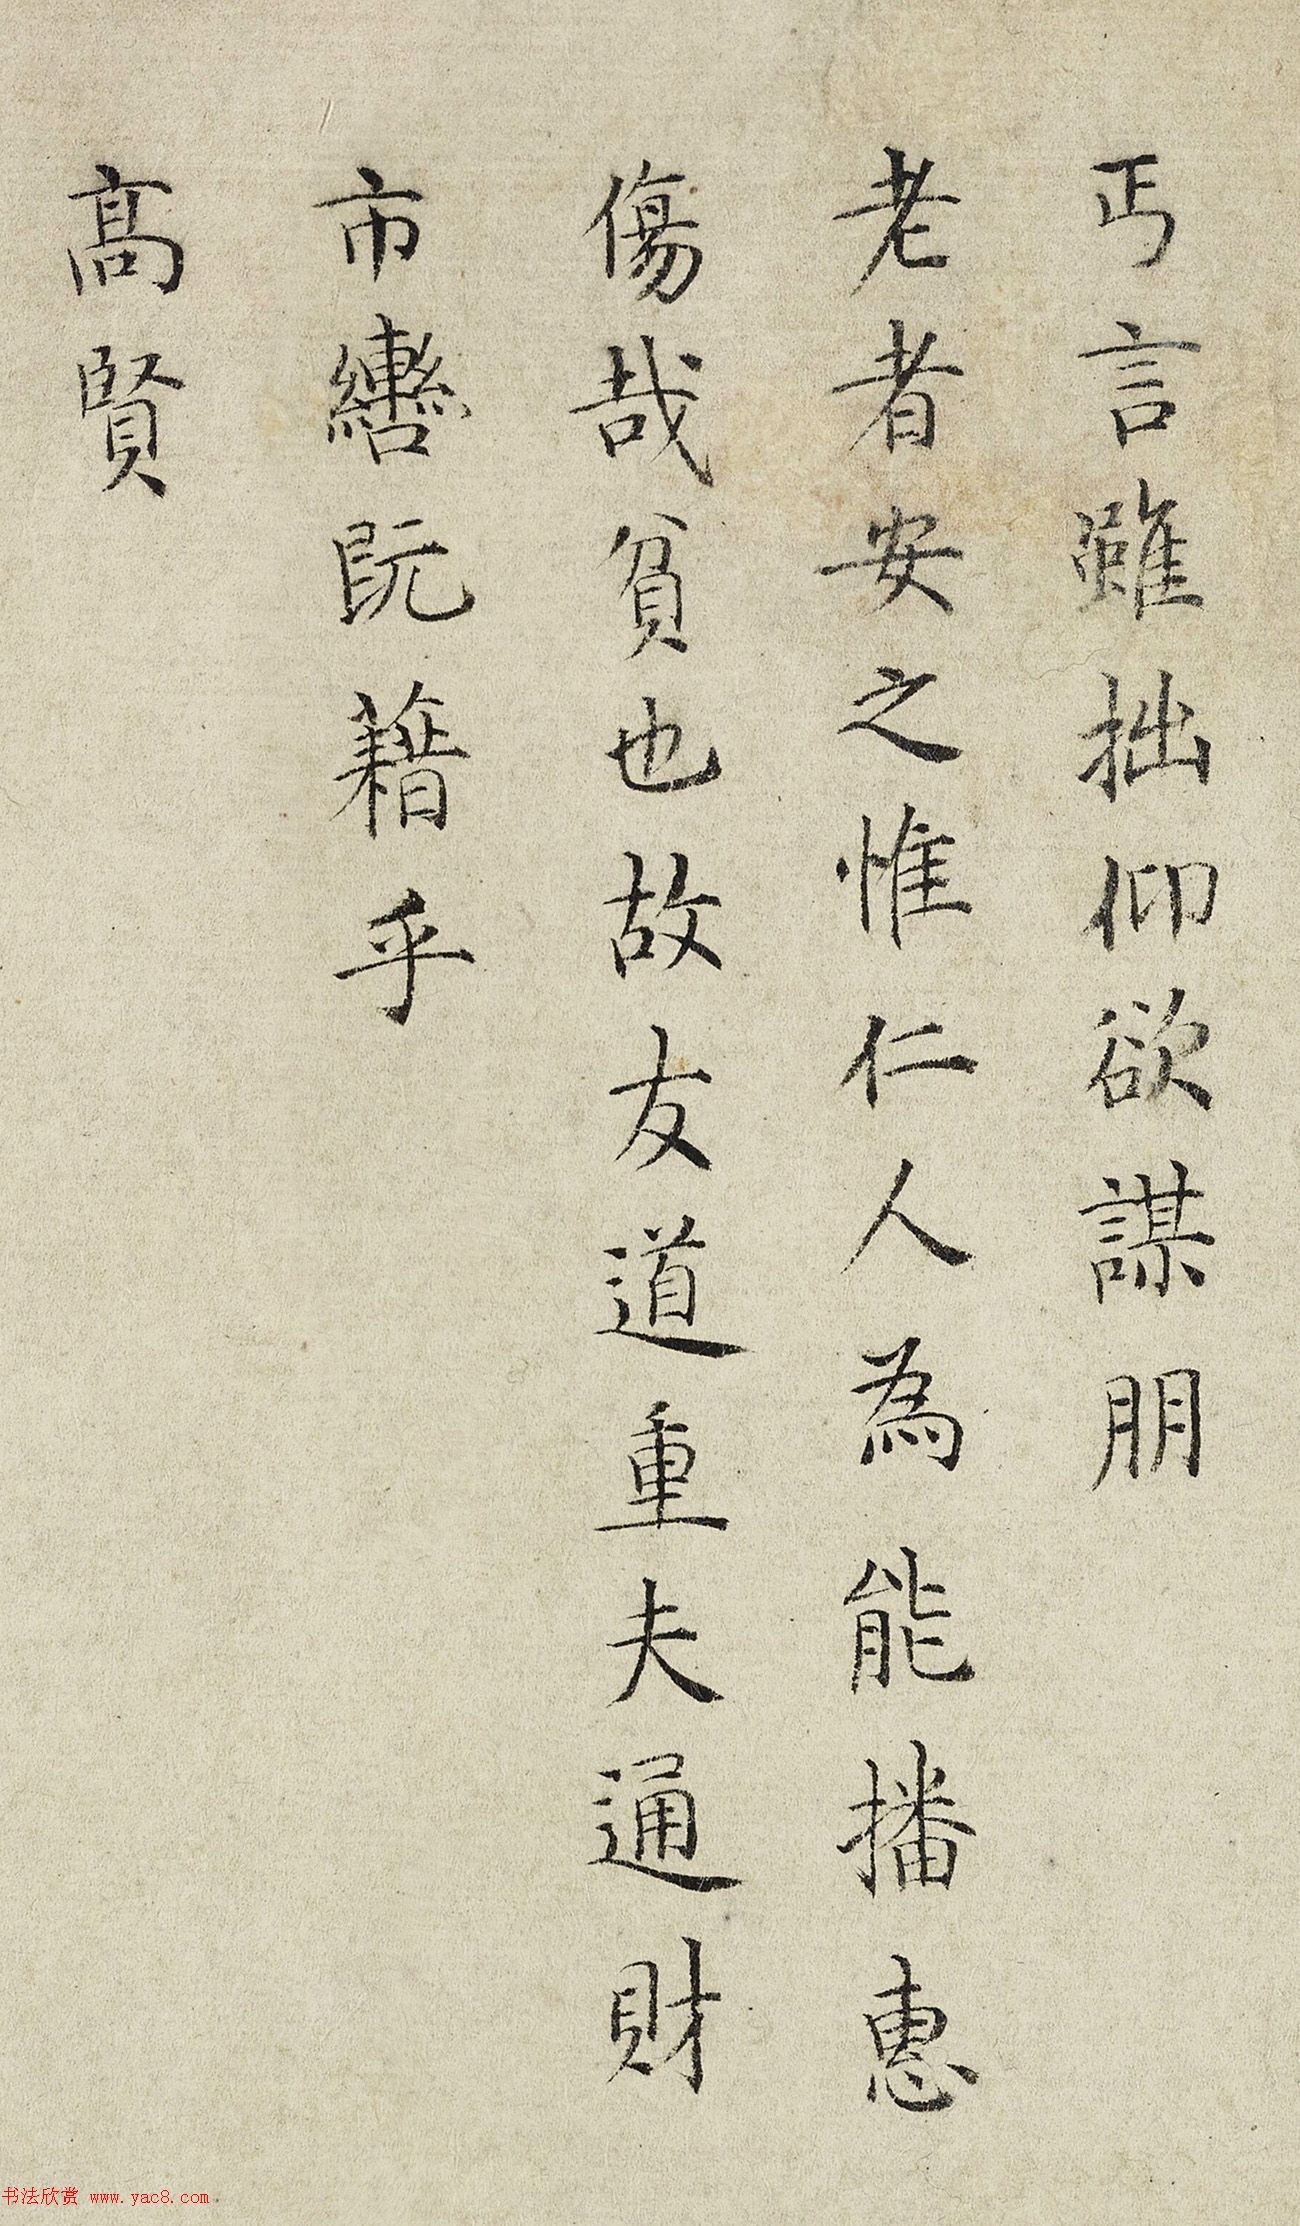 丐言雖拙仰欲謀朋
老者安之惟仁人為能播惠
傷哉貧也故友道重夫通財
市轡阮藉乎
高賢
书法欣赏 www.yac8.com